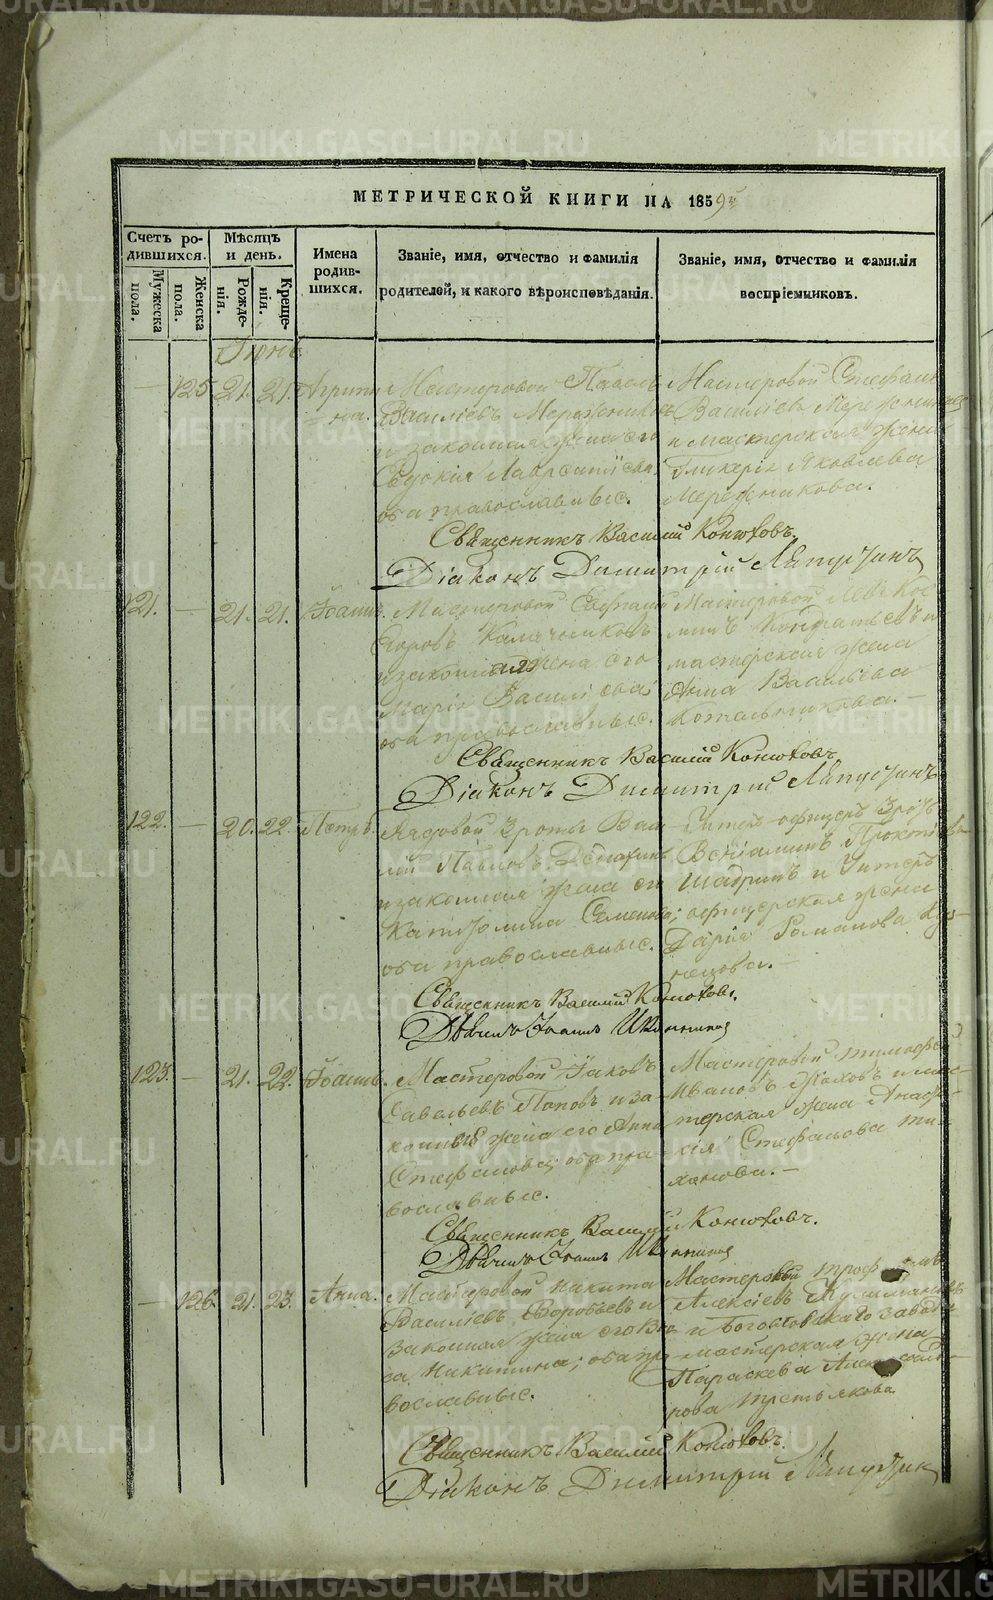 МЕТРИЧЕСКОЙ КНИГИ НА 1859й
Счетъ родившихся.
Мѣсяцъ и день.
Имена родившихся.
Званіе, имя, отчество и фамилія родителей, и какого вѣроисповѣданія.
Званіе, имя, отчество и фамилія воспріемниковъ.
Мужеска пола.
Женска пола.
Рожденія.
Крещенія.
Іюнь
— 125 21. 21. Агрипи
на.
Мастеровой Павелъ
Василіевъ Мережниковъ
и законная жена его
Евдокія Лаврентіева
оба православные.
Мастеровой Стефанъ
Василіевъ Мережниковъ
и мастерская жена
Гликерія Яковлева
Мережникова.
Священникъ Василій Конюховъ.
Діаконъ Димитрій Ляпустинъ
121. — 21. 21. Іоаннъ.
Мастеровой Евфимій
Егоровъ Калачниковъ
и законная жена его
Марія Василіева
оба православные.
Мастеровой
Кондратьевъ и
мастерская жена
Анна Васильева
Котельникова. —
Священникъ Василій Конюховъ
Діаконъ Димитрій Ляпустинъ
122. — 20. 22. Петръ.
Рядовой 3 роты Васи
лій Павловъ
и законная жена его
Семенова;
оба православные.
Унтеръ-офицеръ 3 роты
Веніаминъ
Шадринъ и Унтеръ
офицерская жена
Дарія Романова Куз-
нецова. —
Священникъ Василій Конюховъ.
Дьячекъ Іоаннъ
123. — 21. 22. Іоаннъ.
Мастеровой Іаковъ
Савельевъ Поповъ и за-
конная жена его Анна
Стефанова; оба пра-
вославные.
Мастеровой Тимофей
Ивановъ и мас-
терская жена
Стефанова Ти-
ханова. —
Священникъ Василій Конюховъ.
Дьячекъ Іоаннъ
— 126 21. 23. Анна.
Мастеровой Никита
Василіевъ Воробьевъ и
законная жена его
Никитина; оба пра-
вославные.
Мастеровой
Алексіевъ
и Богословскаго завода
мастерская жена
Параскева Александ-
рова Третьякова
Священникъ Василій Конюховъ.
Діаконъ Димитрій Ляпустинъ
METRIKI.GASO-URAL.RU